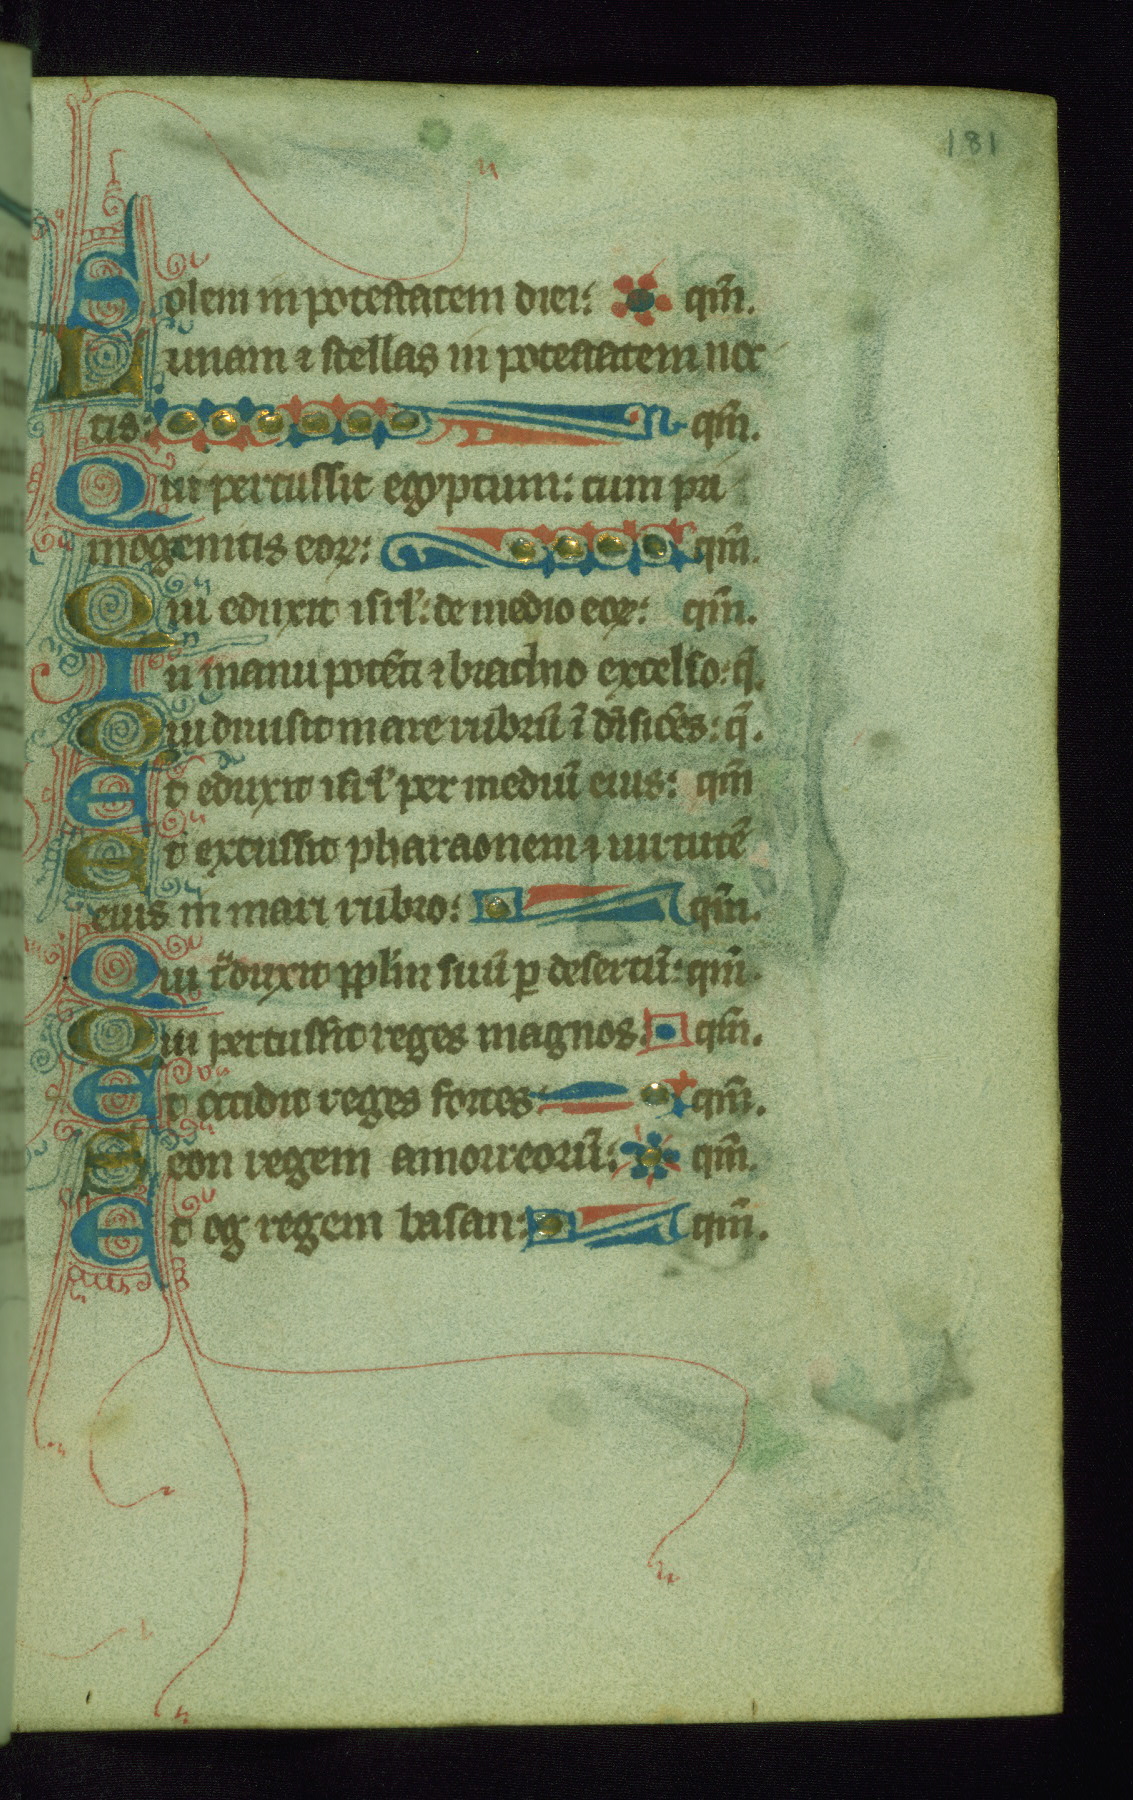 181
Solem in potestatem diei: qm̄.
Lunam ⁊ stellas in potestatem noc
tis: qm̄.
Qui percussit egyptum: cum pri
mogenitis eoꝝ: qm̄.
Qui eduxit isrl': de medio eoꝝ: qm̄.
In manu potēti ⁊ brachio excelso: q̄.
Qui diuisit mare rubrū ī diuisiōēs: q̄.
Et eduxit isrl' per mediū eius: qm̄
Et excussit pharaonem ⁊ uirtutē
eius in mari rubro: qm̄.
Qui tͣduxit pplm suū ꝑ desertū: qm̄.
Qui percussit reges magnos: qm̄.
Et occidit reges fortes: qm̄.
Seon regem amorreorū: qm̄.
Et og regem basan: qm̄.